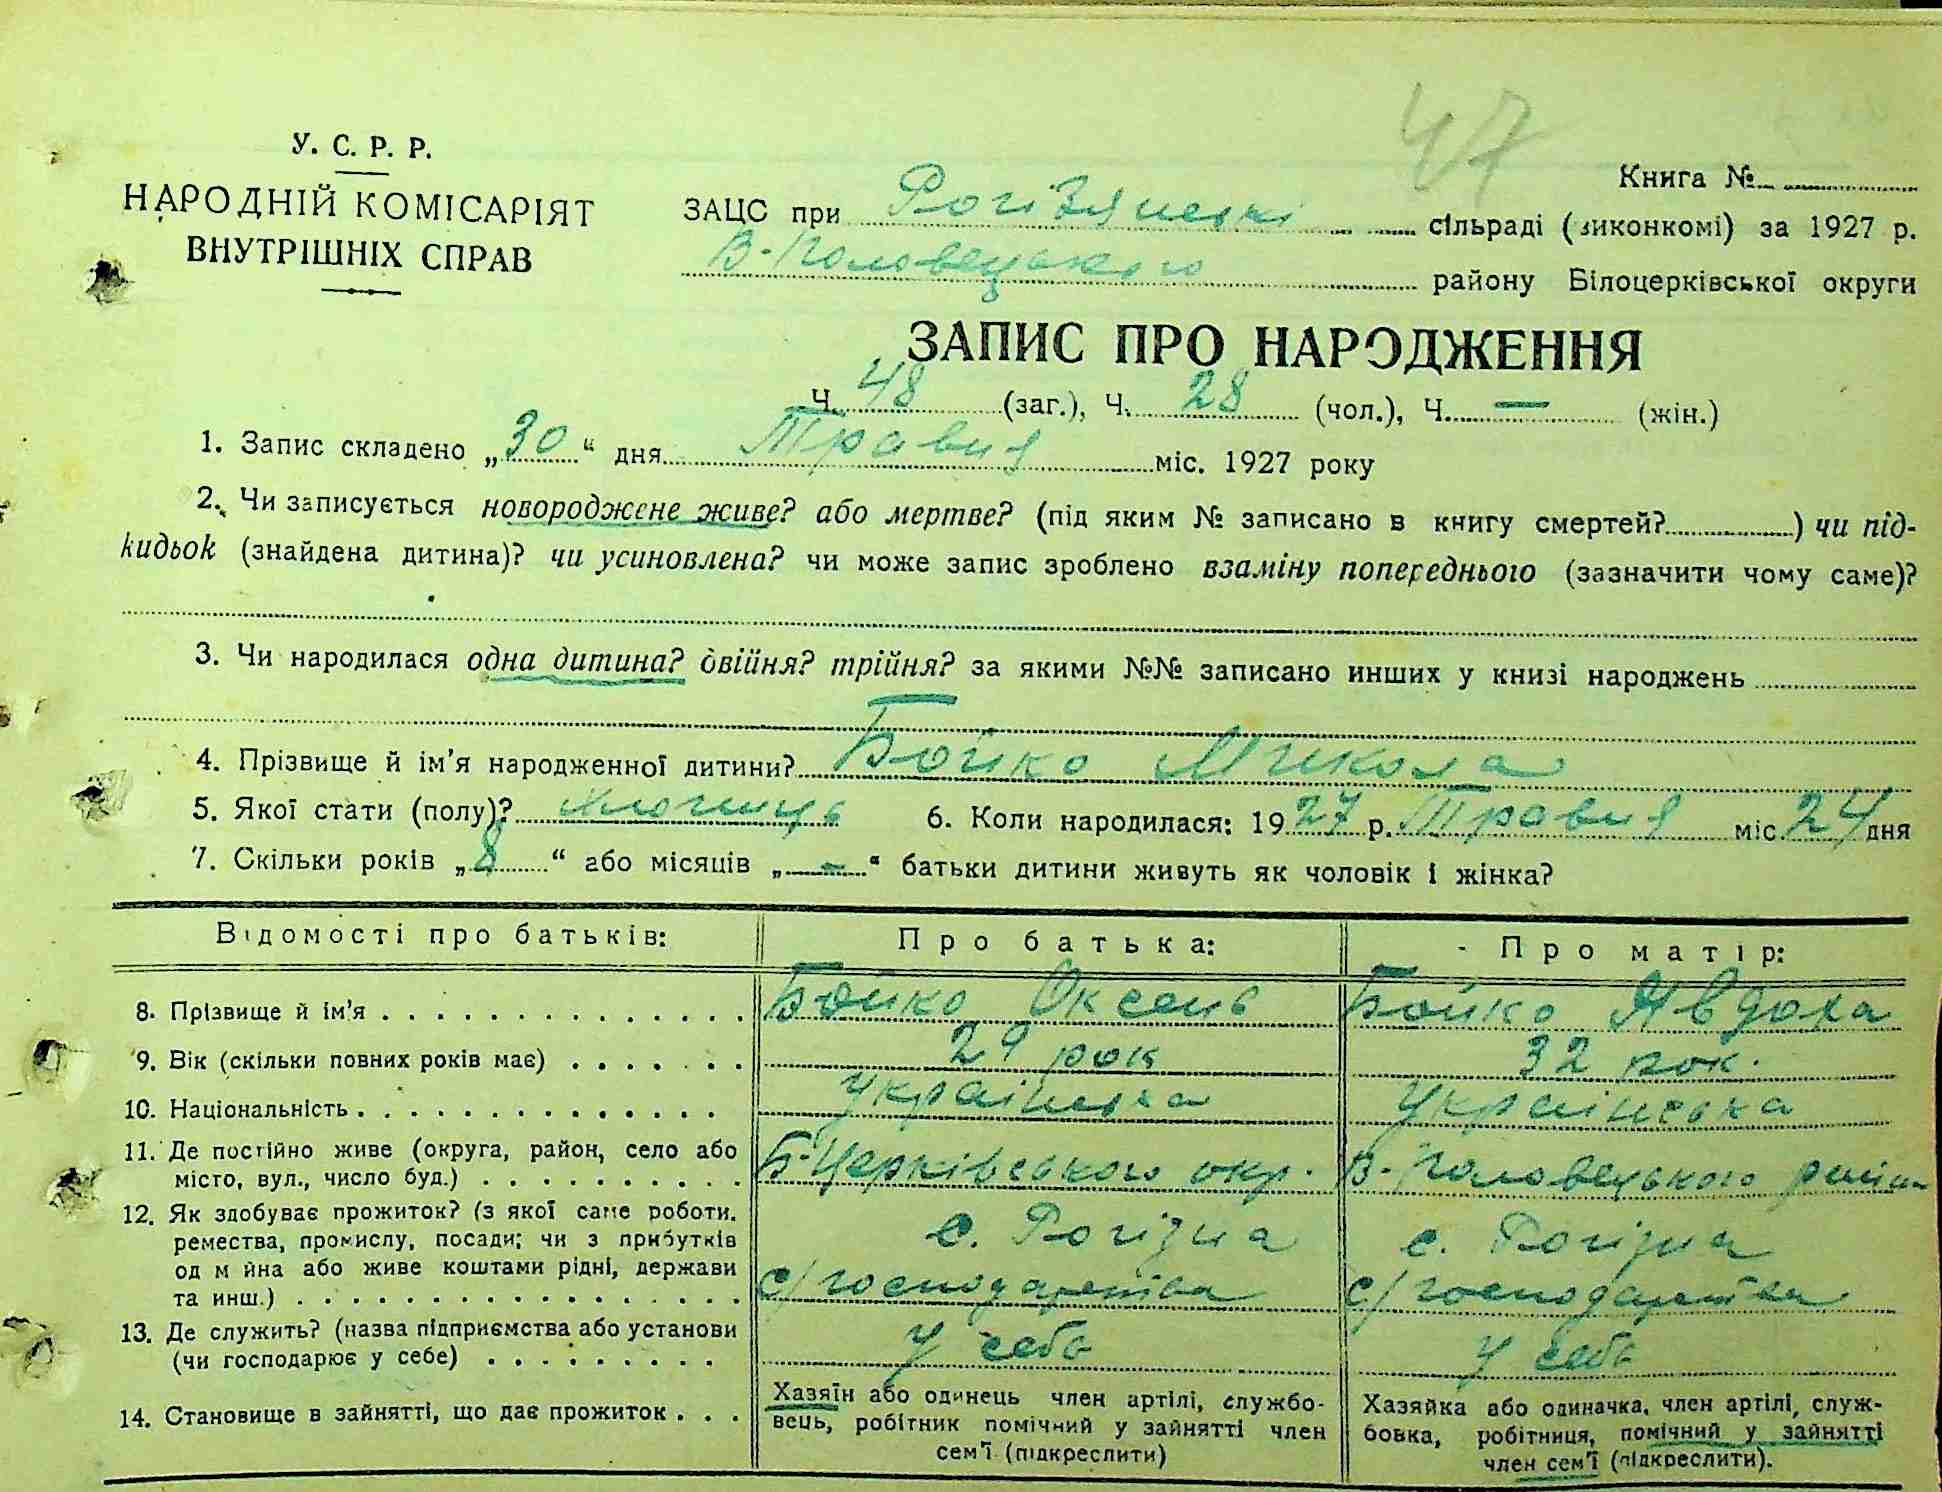 47
У. С. Р. Р.
НАРОДНІЙ КОМІСАРІЯТ
ВНУТРІШНІХ СПРАВ
Книга №
ЗАЦС при Рогізянські сільраді (виконкомі) за 1927 р.
В-Половецького району Білоцерківської округи
ЗАПИС ПРО НАРОДЖЕННЯ
Ч. 48 (заг.), Ч. 28 (чол.), Ч. — (жін.)
1. Запис складено „30“ дня Травня міс. 1927 року
2. Чи записується новороджене живе? або мертве? (під яким № записано в книгу смертей?) чи під-
кидьок (знайдена дитина)? чи усиновлена? чи може запис зроблено взаміну попереднього (зазначити чому саме)?
3. Чи народилася одна дитина? двійня? трійня? за якими №№ записано инших у книзі народжень
4. Прізвище й ім'я народженної дитини? Бойко Микола
5. Якої стати (полу)? хлопець 6. Коли народилася: 1927 р. Травня міс 24 дня
7. Скільки років „8“ або місяців „—“ батьки дитини живуть як чоловік і жінка?
Відомості про батьків: Про батька: Про матір:
8. Прізвище й ім'я Бойко Оксень Бойко Явдоха
9. Вік (скільки повних років має) 29 рок 32 рок.
10. Національність українська українська
11. Де постійно живе (округа, район, село або
місто, вул., число буд.) Б-Церківського окр. В-Половецького район
12. Як здобуває прожиток? (з якої саме роботи,
ремества, промислу, посади; чи з прибутків с. Рогізна с. Рогізна
од майна або живе коштами рідні, держави
та инш.) с/господарства с/господарства
13. Де служить? (назва підприємства або установи
(чи господарює у себе) у себь у себь
14. Становище в зайнятті, що дає прожиток
Хазяїн або одинець член артілі, службо-
вець, робітник помічний у зайнятті член
сем'ї (підкреслити)
Хазяйка або одиначка, член артілі, служ-
бовка, робітниця, помічний у зайнятті
член сем'ї (підкреслити).